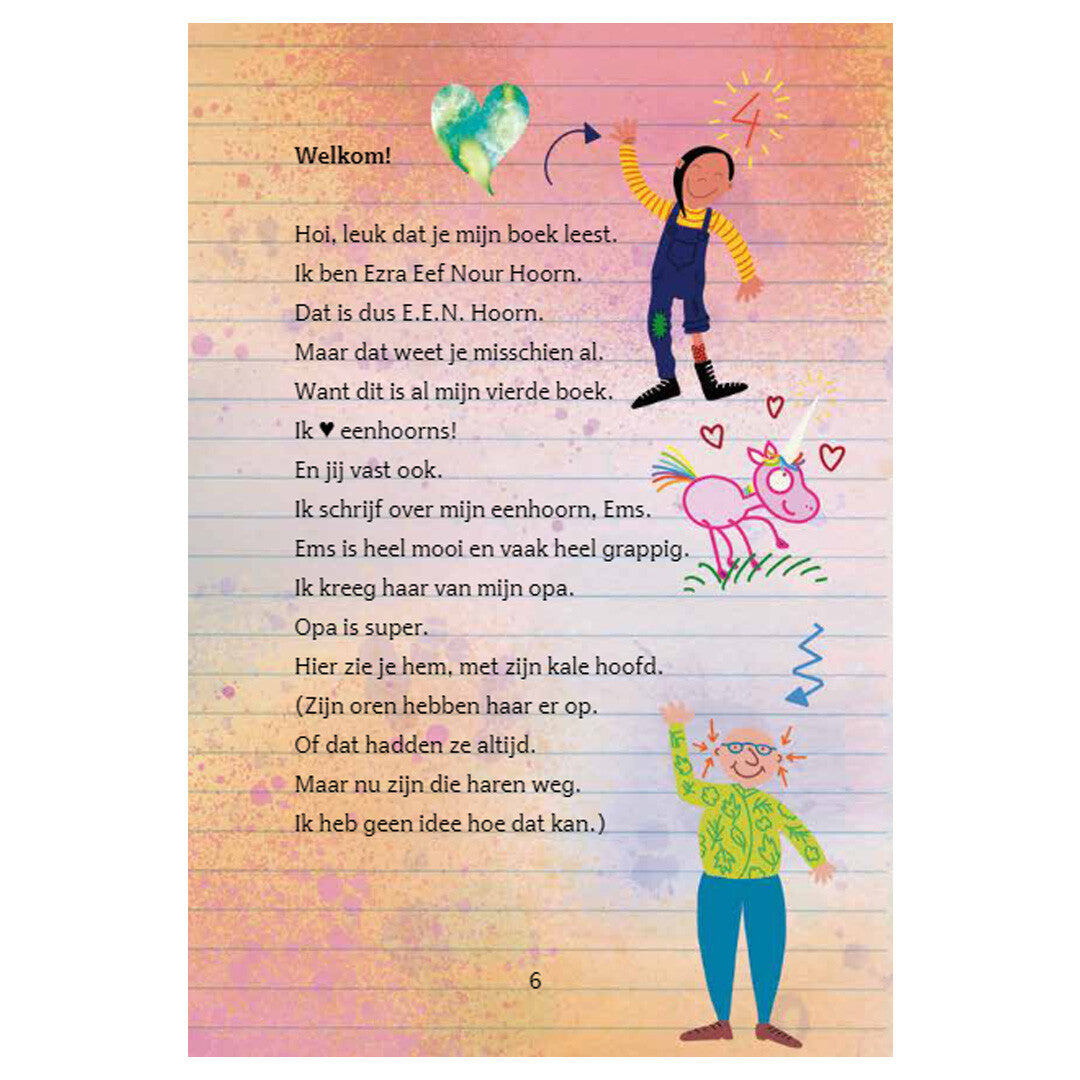 4
Welkom!
Hoi, leuk dat je mijn boek leest.
Ik ben Ezra Eef Nour Hoorn.
Dat is dus E.E.N. Hoorn.
Maar dat weet je misschien al.
Want dit is al mijn vierde boek.
Ik ♥ eenhoorns!
En jij vast ook.
Ik schrijf over mijn eenhoorn, Ems.
Ems is heel mooi en vaak heel grappig.
Ik kreeg haar van mijn opa.
Opa is super.
Hier zie je hem, met zijn kale hoofd.
(Zijn oren hebben haar er op.
Of dat hadden ze altijd.
Maar nu zijn die haren weg.
Ik heb geen idee hoe dat kan.)
6